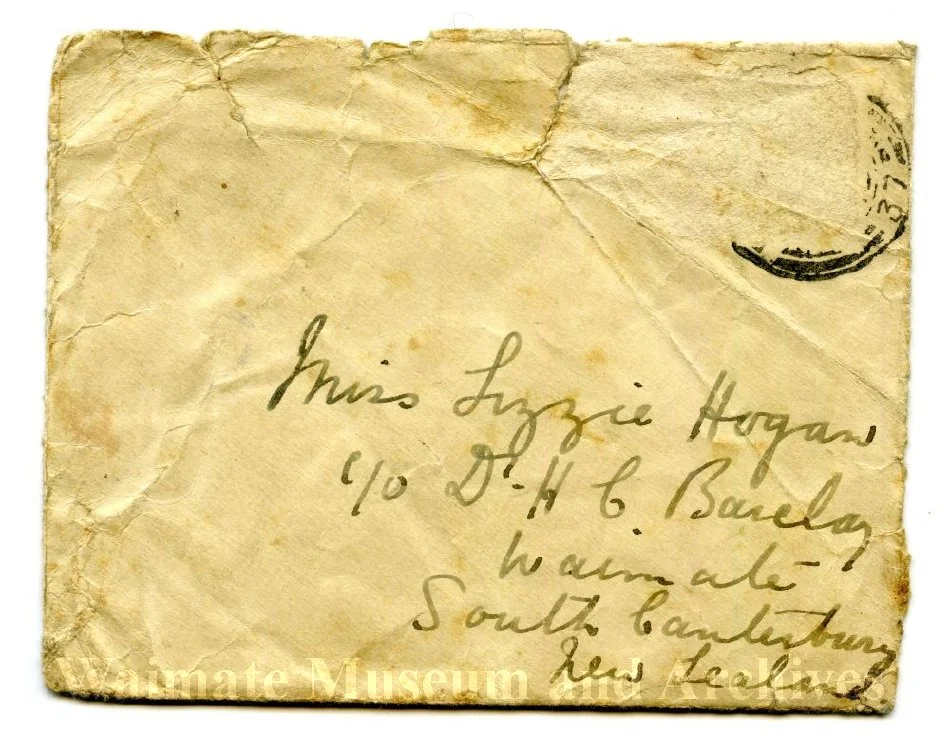 87
Miss Lizzie Hogan
c/o Dr H C Barclay
Waimate
South Canterbury
New Zealand
Waimate Museum and Archives